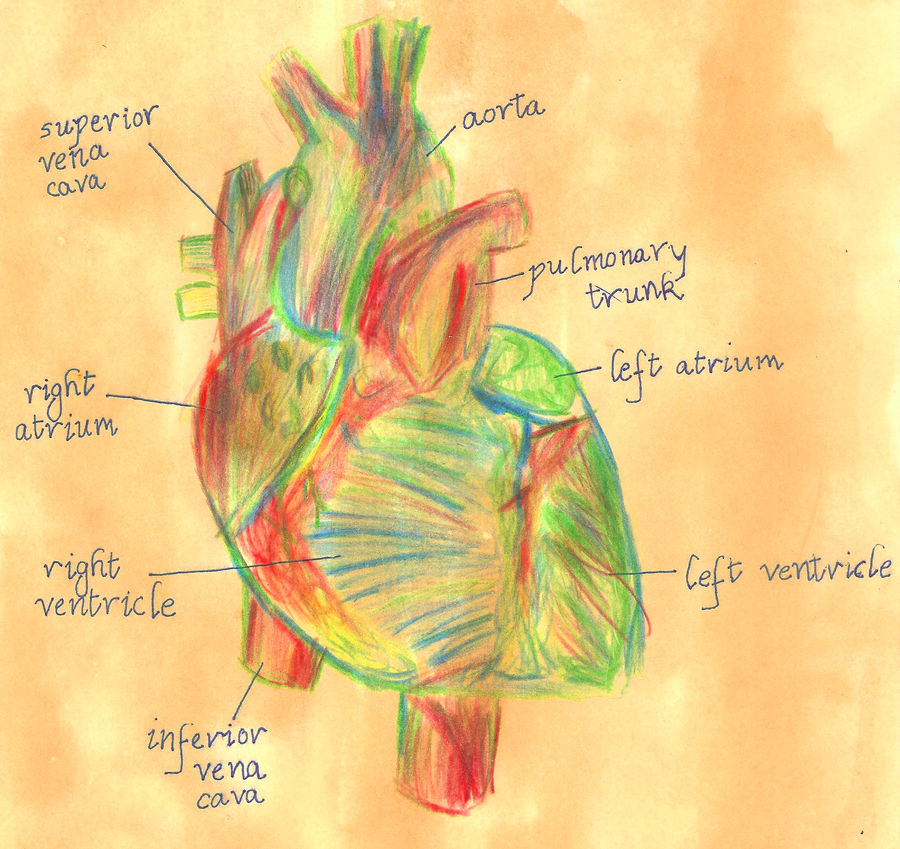 superior
vena
cava
aorta
pulmonary
trunk
left atrium
right
atrium
right
ventricle
left ventricle
inferior
vena
cava